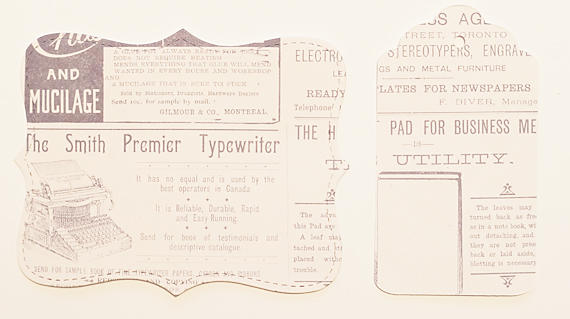 AND
MUCILAGE
A GLUE POT ALWAYS READY FOR
DOES NOT REQUIRE HEATING
MENDS EVERYTHING THAT GLUE WILL MEND
WANTED IN EVERY HOUSE AND WORKSHOP
AND
A MUCILAGE THAT IS SURE TO STICK
Sold by Stationers, Druggists, Hardware Dealers
Send 10c. for sample by mail.
GILMOUR & CO., MONTREAL
The Smith Premier Typewriter
It has no equal and is used by the
best operators in Canada
It is Reliable, Durable, Rapid
and Easy Running.
Send for book of testimonials and
descriptive catalogue.
SEND FOR SAMPLE BOOK OF FINE TYPEWRITER PAPERS, CARBONS AND RIBBONS
ELECTRO
LEA
READY
Telephone
THE H
T
The adv
this Pad are
A leaf may
tached and
placed witho
trouble.
SS AG
STREET, TORONTO
STEREOTYPERS, ENGRAVE
GS AND METAL FURNITURE
PLATES FOR NEWSPAPERS
F. DIVER, Manage
PAD FOR BUSINESS ME
IS
UTILITY.
The leaves may
turned back as free
as in a note book, wi
out detaching, and
they are not pres
back or laid aside,
blotting is necessary